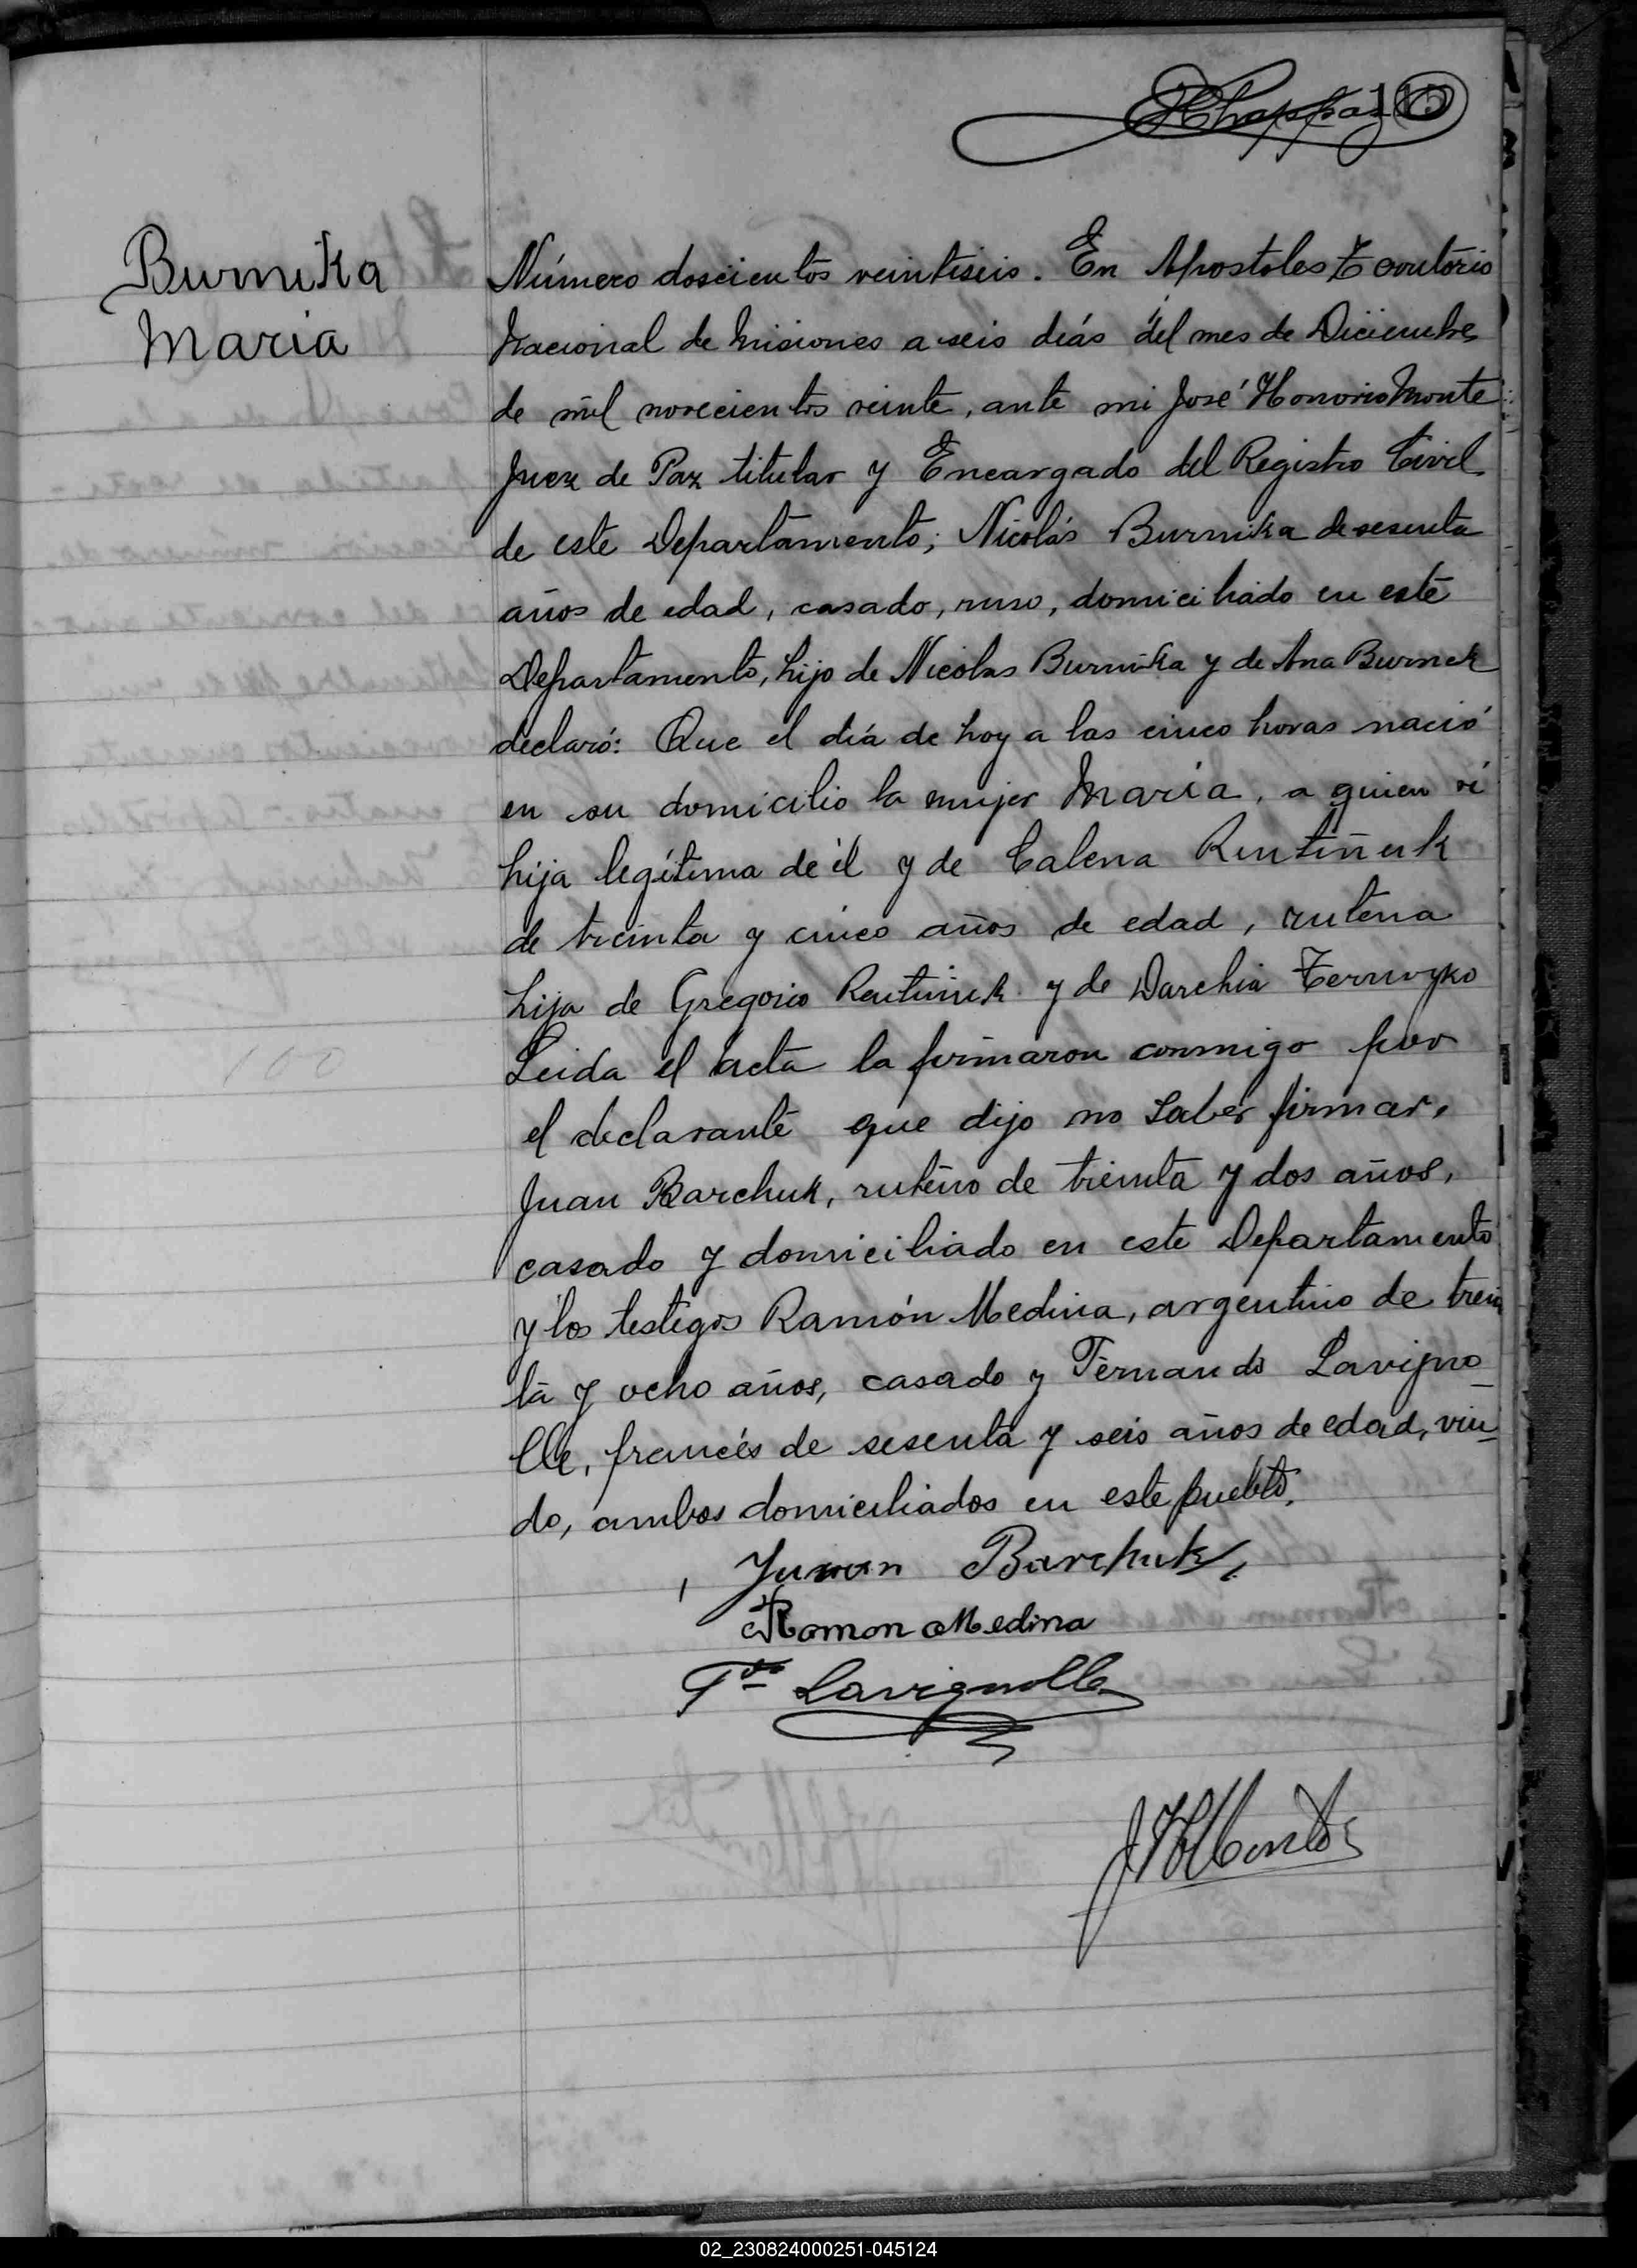 115
Burnika
Maria
Número doscientos veintiseis. En Apostoles Territorio
Nacional de Misiones a seis días del mes de Diciembre
de mil novecientos veinte, ante mi José Honorio Monte
Juez de Paz titular y Encargado del Registro Civil
de este Departamento; Nicolás Burnika de sesenta
años de edad, casado, ruso, domiciliado en este
Departamento, hijo de Nicolas Burnika y de Ana Burnek
declaró: Que el día de hoy a las cinco horas nació
en su domicilio la mujer Maria, a quien ví
hija legítima de él y de Calena Rutiñuk
de treinta y cinco años de edad, rutena
hija de Gregorio y de Darchia
Leida el acta la firmaron conmigo por
el declarante que dijo no saber firmar,
Juan Barchuk, ruteno de treinta y dos años,
casado y domiciliado en este Departamento
y los testigos Ramón Medina, argentino de trein
ta y ocho años, casado y Fernando Lavigno
lle, francés de sesenta y seis años de edad, viu-
do, ambos domiciliados en este pueblo.
Juwan Barchuk
Ramon Medina
Fdo Lavignolle
100
02_230824000251-045124